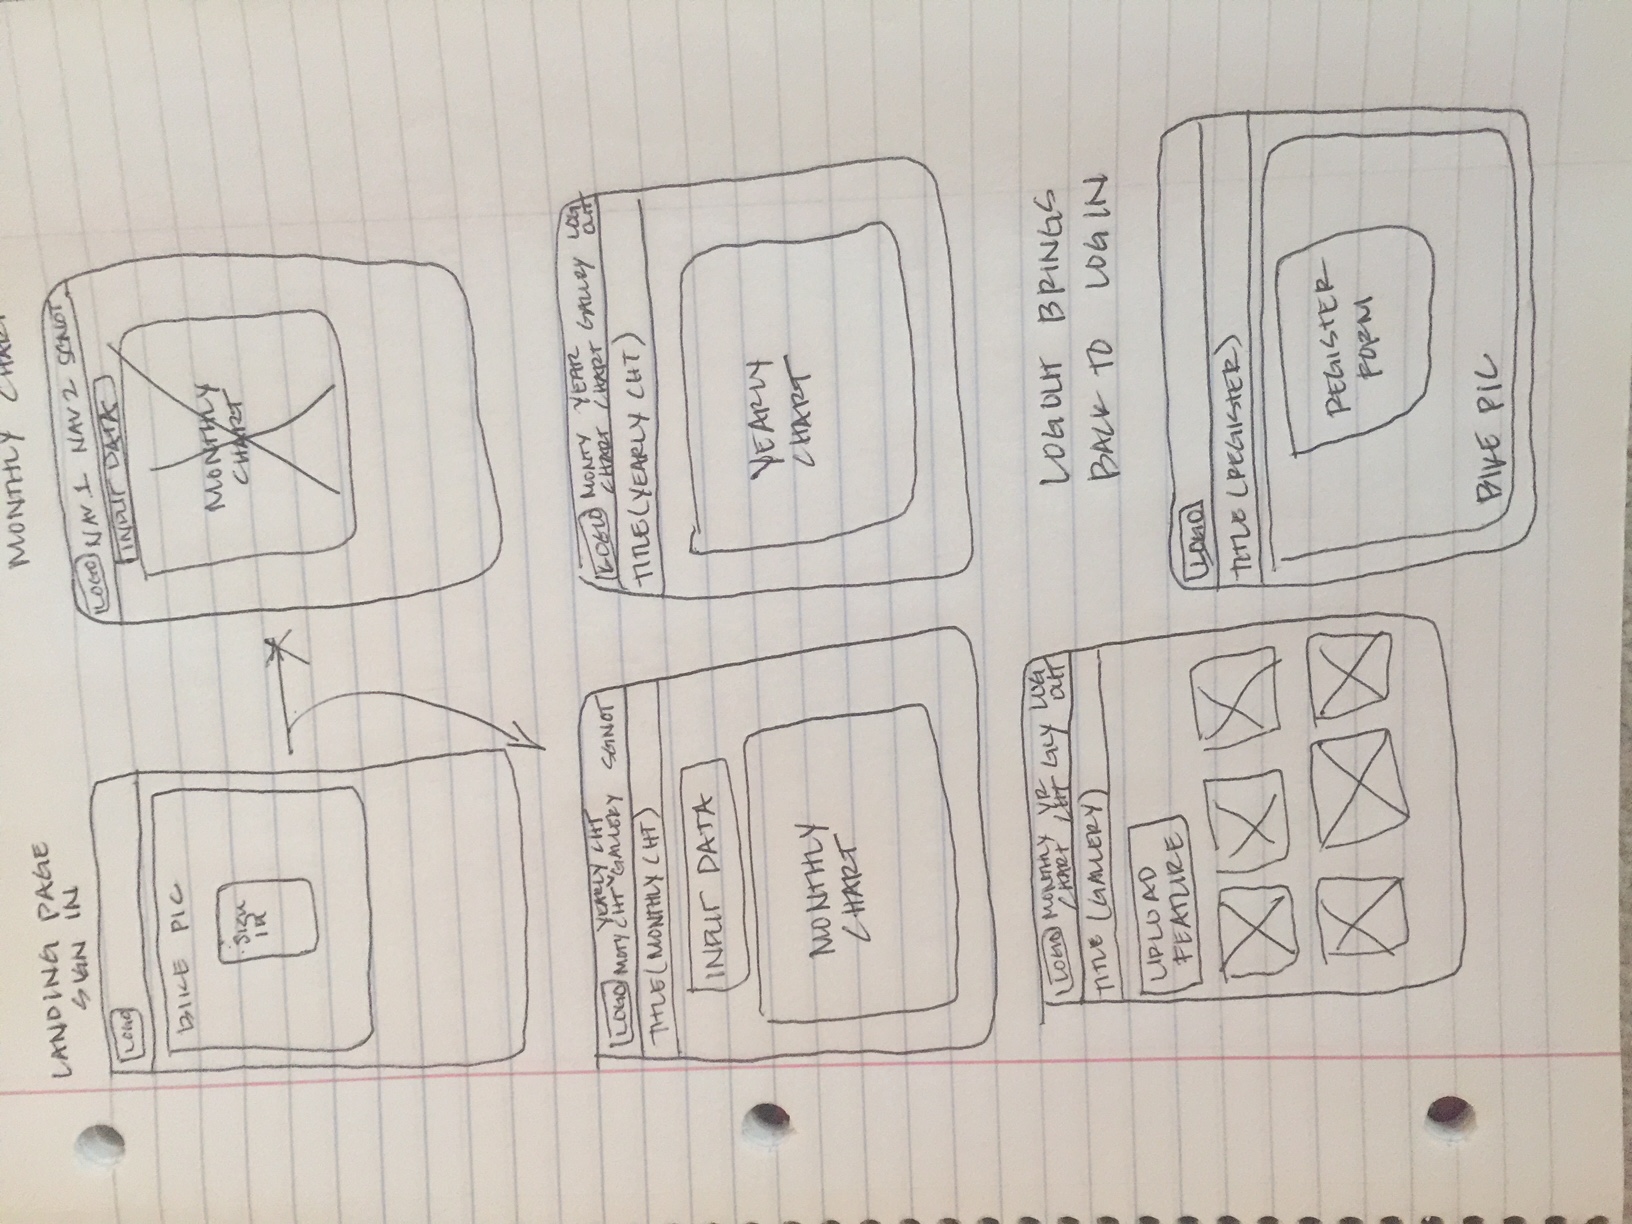 LANDING PAGE
SIGN IN
LOGO
BIKE PIC
SIGN
IN
MONTHLY CHART
LOGO NAV 1 NAV 2 SGNOT
INPUT DATA
MONTHLY
CHART
YEARLY CHT
LOGO MOTY CHT GALLERY SGNOT
TITLE (MONTHLY CHT)
INPUT DATA
MONTHLY
CHART
LOGO MONTY CHART YEAR CHART GALLRY LOG OUT
TITLE (YEARLY CHT)
YEARLY
CHART
LOGO MONTHLY CHART YR CHT GLY LOG OUT
TITLE (GALLERY)
UPLOAD
FEATURE
LOGOUT BRINGS
BACK TO LOG IN
LOGO
TITLE (REGISTER)
REGISTER
FORM
BIKE PIC